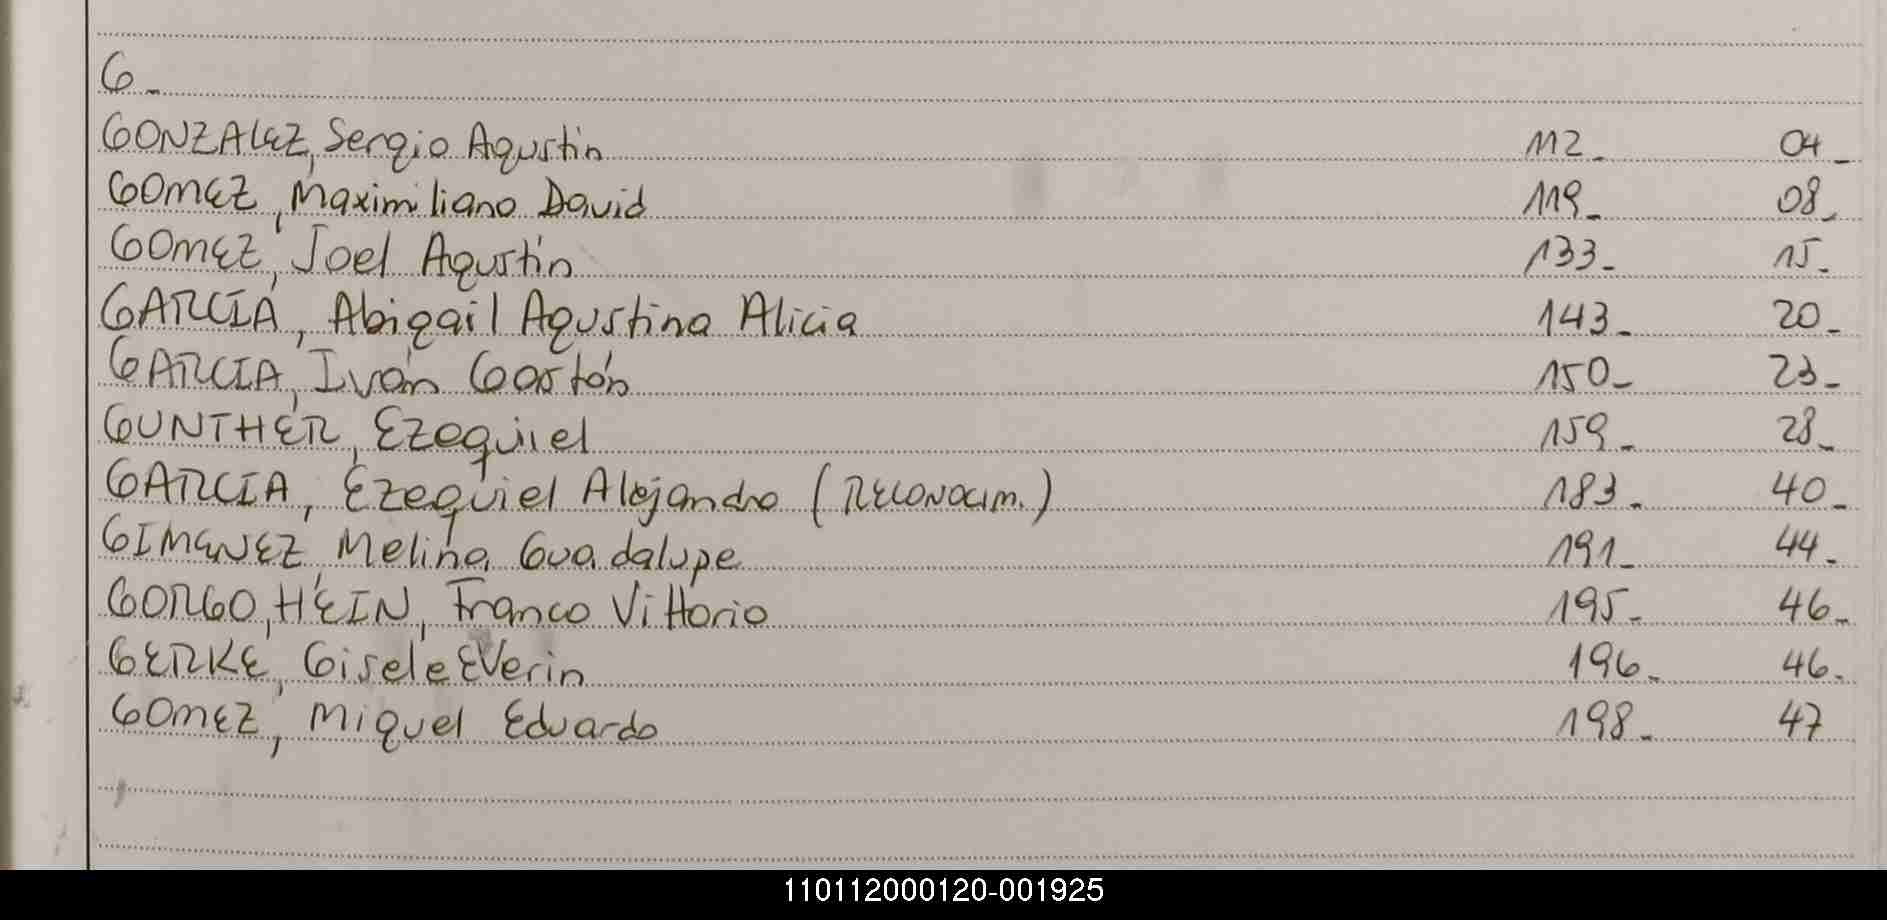 G_
GONZALEZ, Sergio Agustin 112_ 04_
GOMEZ, Maximiliano David 119_ 08_
GOMEZ, Joel Agustín 133_ 15_
GARCIA, Abigail Agustina Alicia 143_ 20_
GARCIA, Iván Gastón 150_ 23_
GUNTHER, Ezequiel 159_ 28_
GARCIA, Ezequiel Alejandro (RECONOCIM.) 183_ 40_
GIMENEZ, Melina Guadalupe 191_ 44_
GORGO, HEIN, Franco Vittorio 195_ 46_
GERKE, Gisele Everin 196_ 46_
GOMEZ, Miguel Eduardo 198_ 47
110112000120-001925